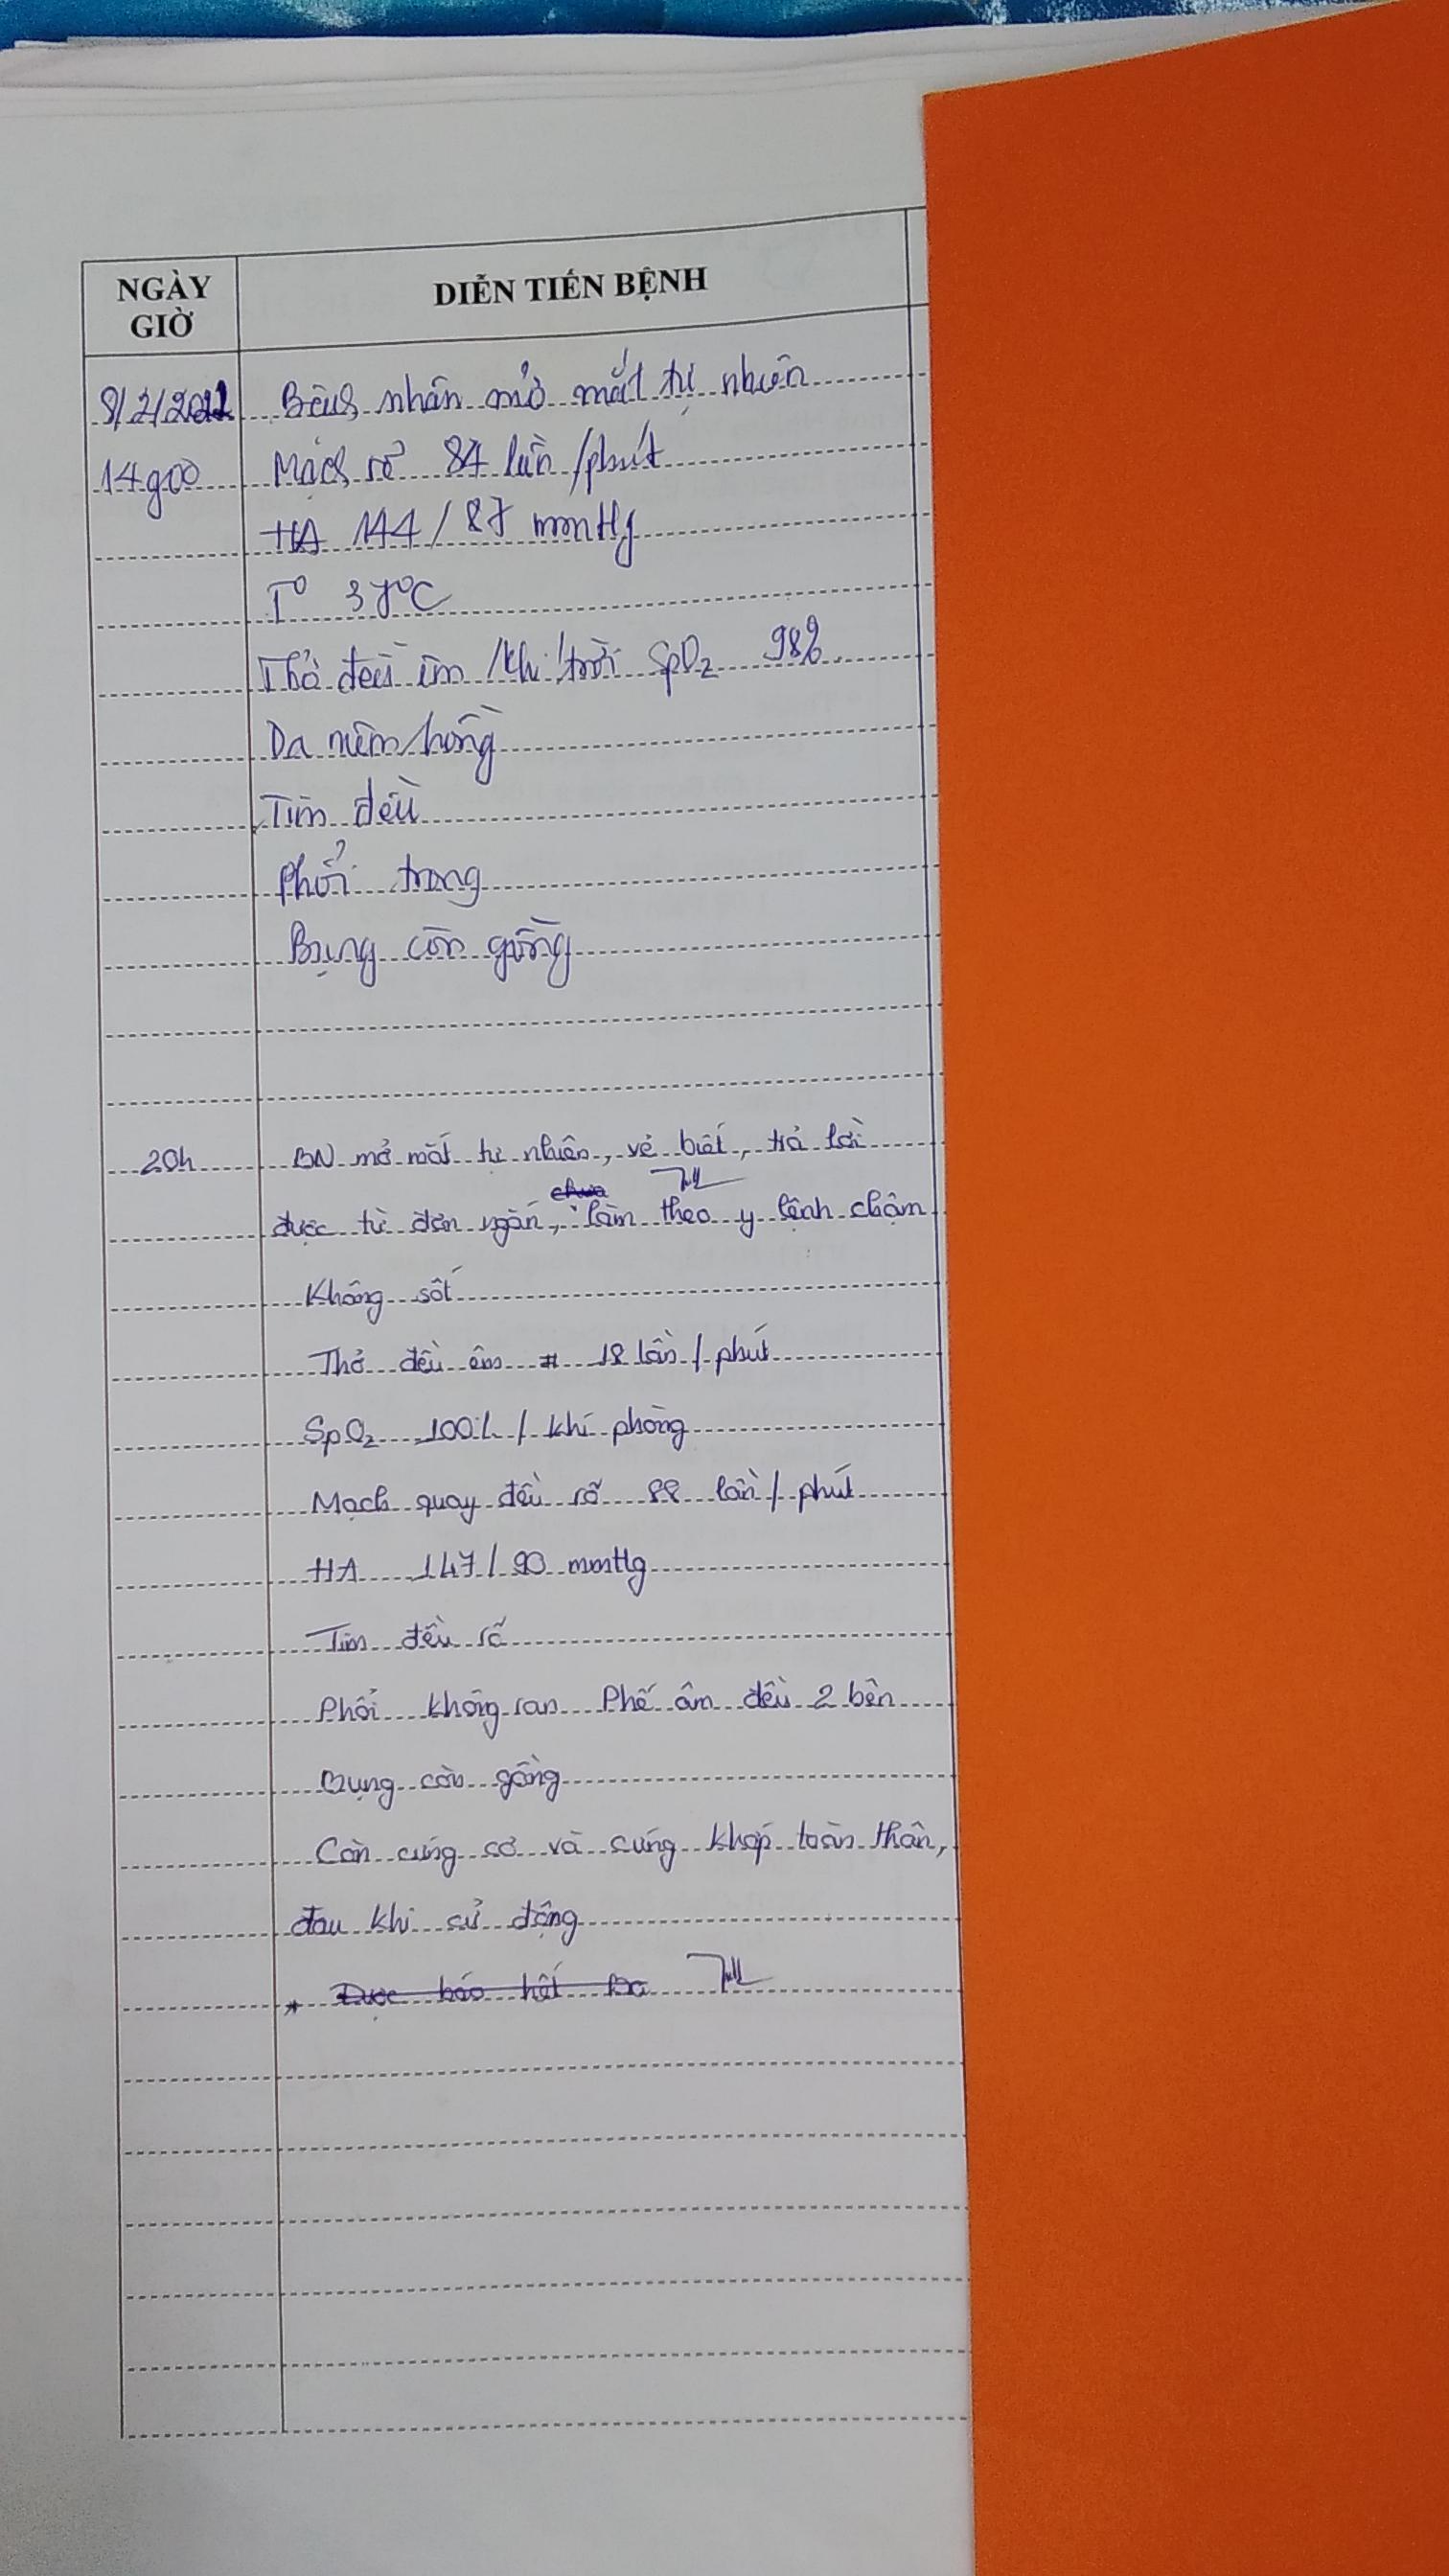 NGÀY
GIỜ
DIỄN TIẾN BỆNH
Bệnh nhân mở mắt tự nhiên
14g00
Mạch rõ 87 lần/phút
HA 144/87 mmHg
T° 37°C
Thở đều êm /khí trời SpO₂ 98%
Da niêm hồng
Tim đều
Phổi trong
Bụng còn gồng
20h
BN mở mắt tự nhiên, vẻ biết, trả lời
chưa
được từ đơn ngắn, làm theo y lệnh chậm
Không sốt
Thở đều êm # 18 lần/phút
SpO₂ 100% / khí phòng
Mạch quay đều rõ 88 lần/phút
HA 147/90 mmHg
Tim đều rõ
Phổi không ran Phế âm đều 2 bên
Bụng còn gồng
Còn cứng cơ và cứng khớp toàn thân,
đau khi cử động
* Được báo hết